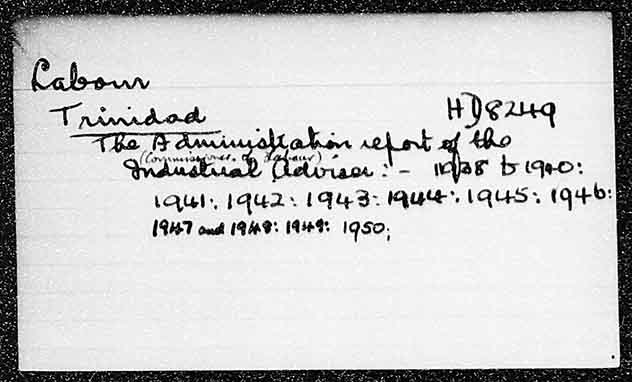 Labour
Trinidad HD8249
The Administration report of the
(Commissioner of Labour)
Industrial Adviser: - 1938 to 1940:
1941: 1942: 1943: 1944: 1945: 1946:
1947 and 1948: 1949: 1950;